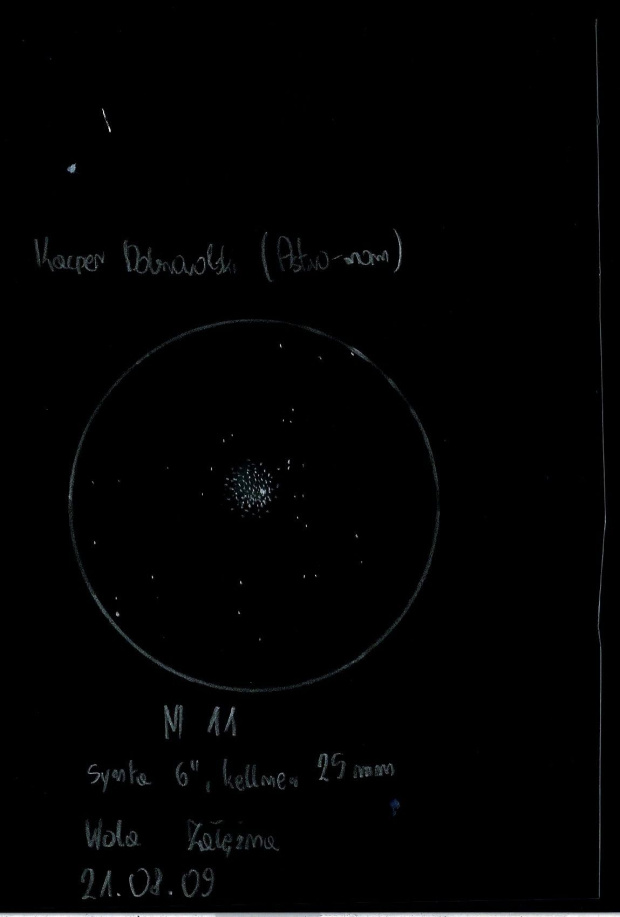 Kacper Dobrowolski (Astro-nom)
M 11
Synta 6", kellner 25 mm
Wola Załężna
21.08.09